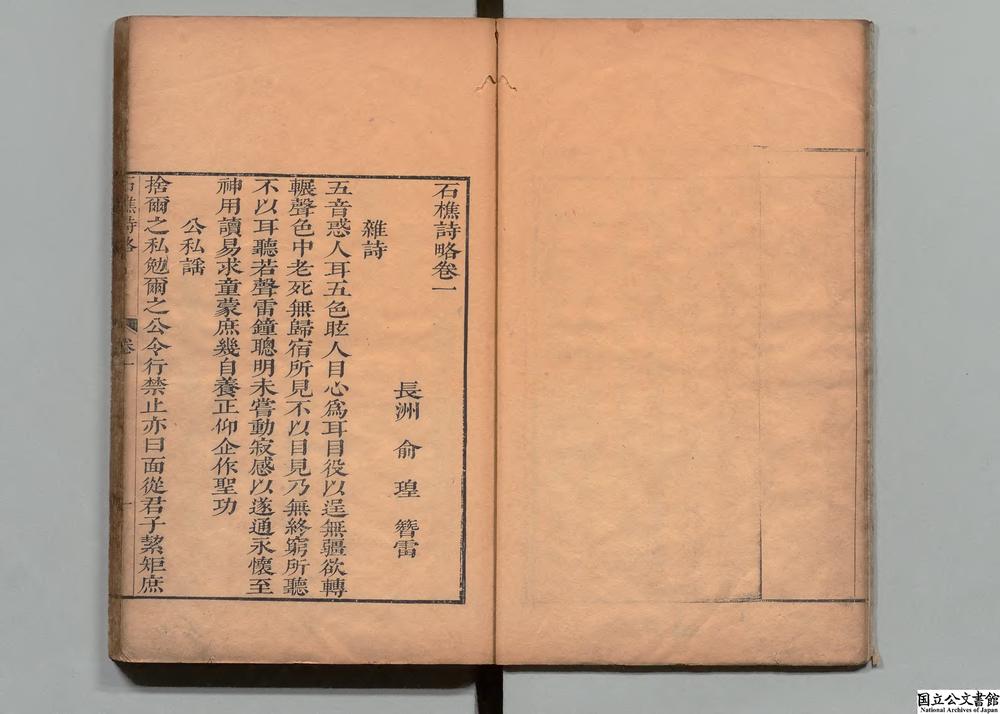 石樵詩略卷一
長洲 俞瑝 簪雷
雜詩
五音惑人耳五色眩人目心爲耳目役以逞無疆欲轉
輾聲色中老死無歸宿所見不以目見乃無終窮所聽
不以耳聽若聲雷鐘聰明未嘗動寂感以遂通永懷至
神用讀易求童蒙庶幾自養正仰企作聖功
公私謡
捨爾之私勉爾之公令行禁止亦曰面從君子絜矩庶
石樵詩略 卷一 一
国立公文書館
National Archives of Japan